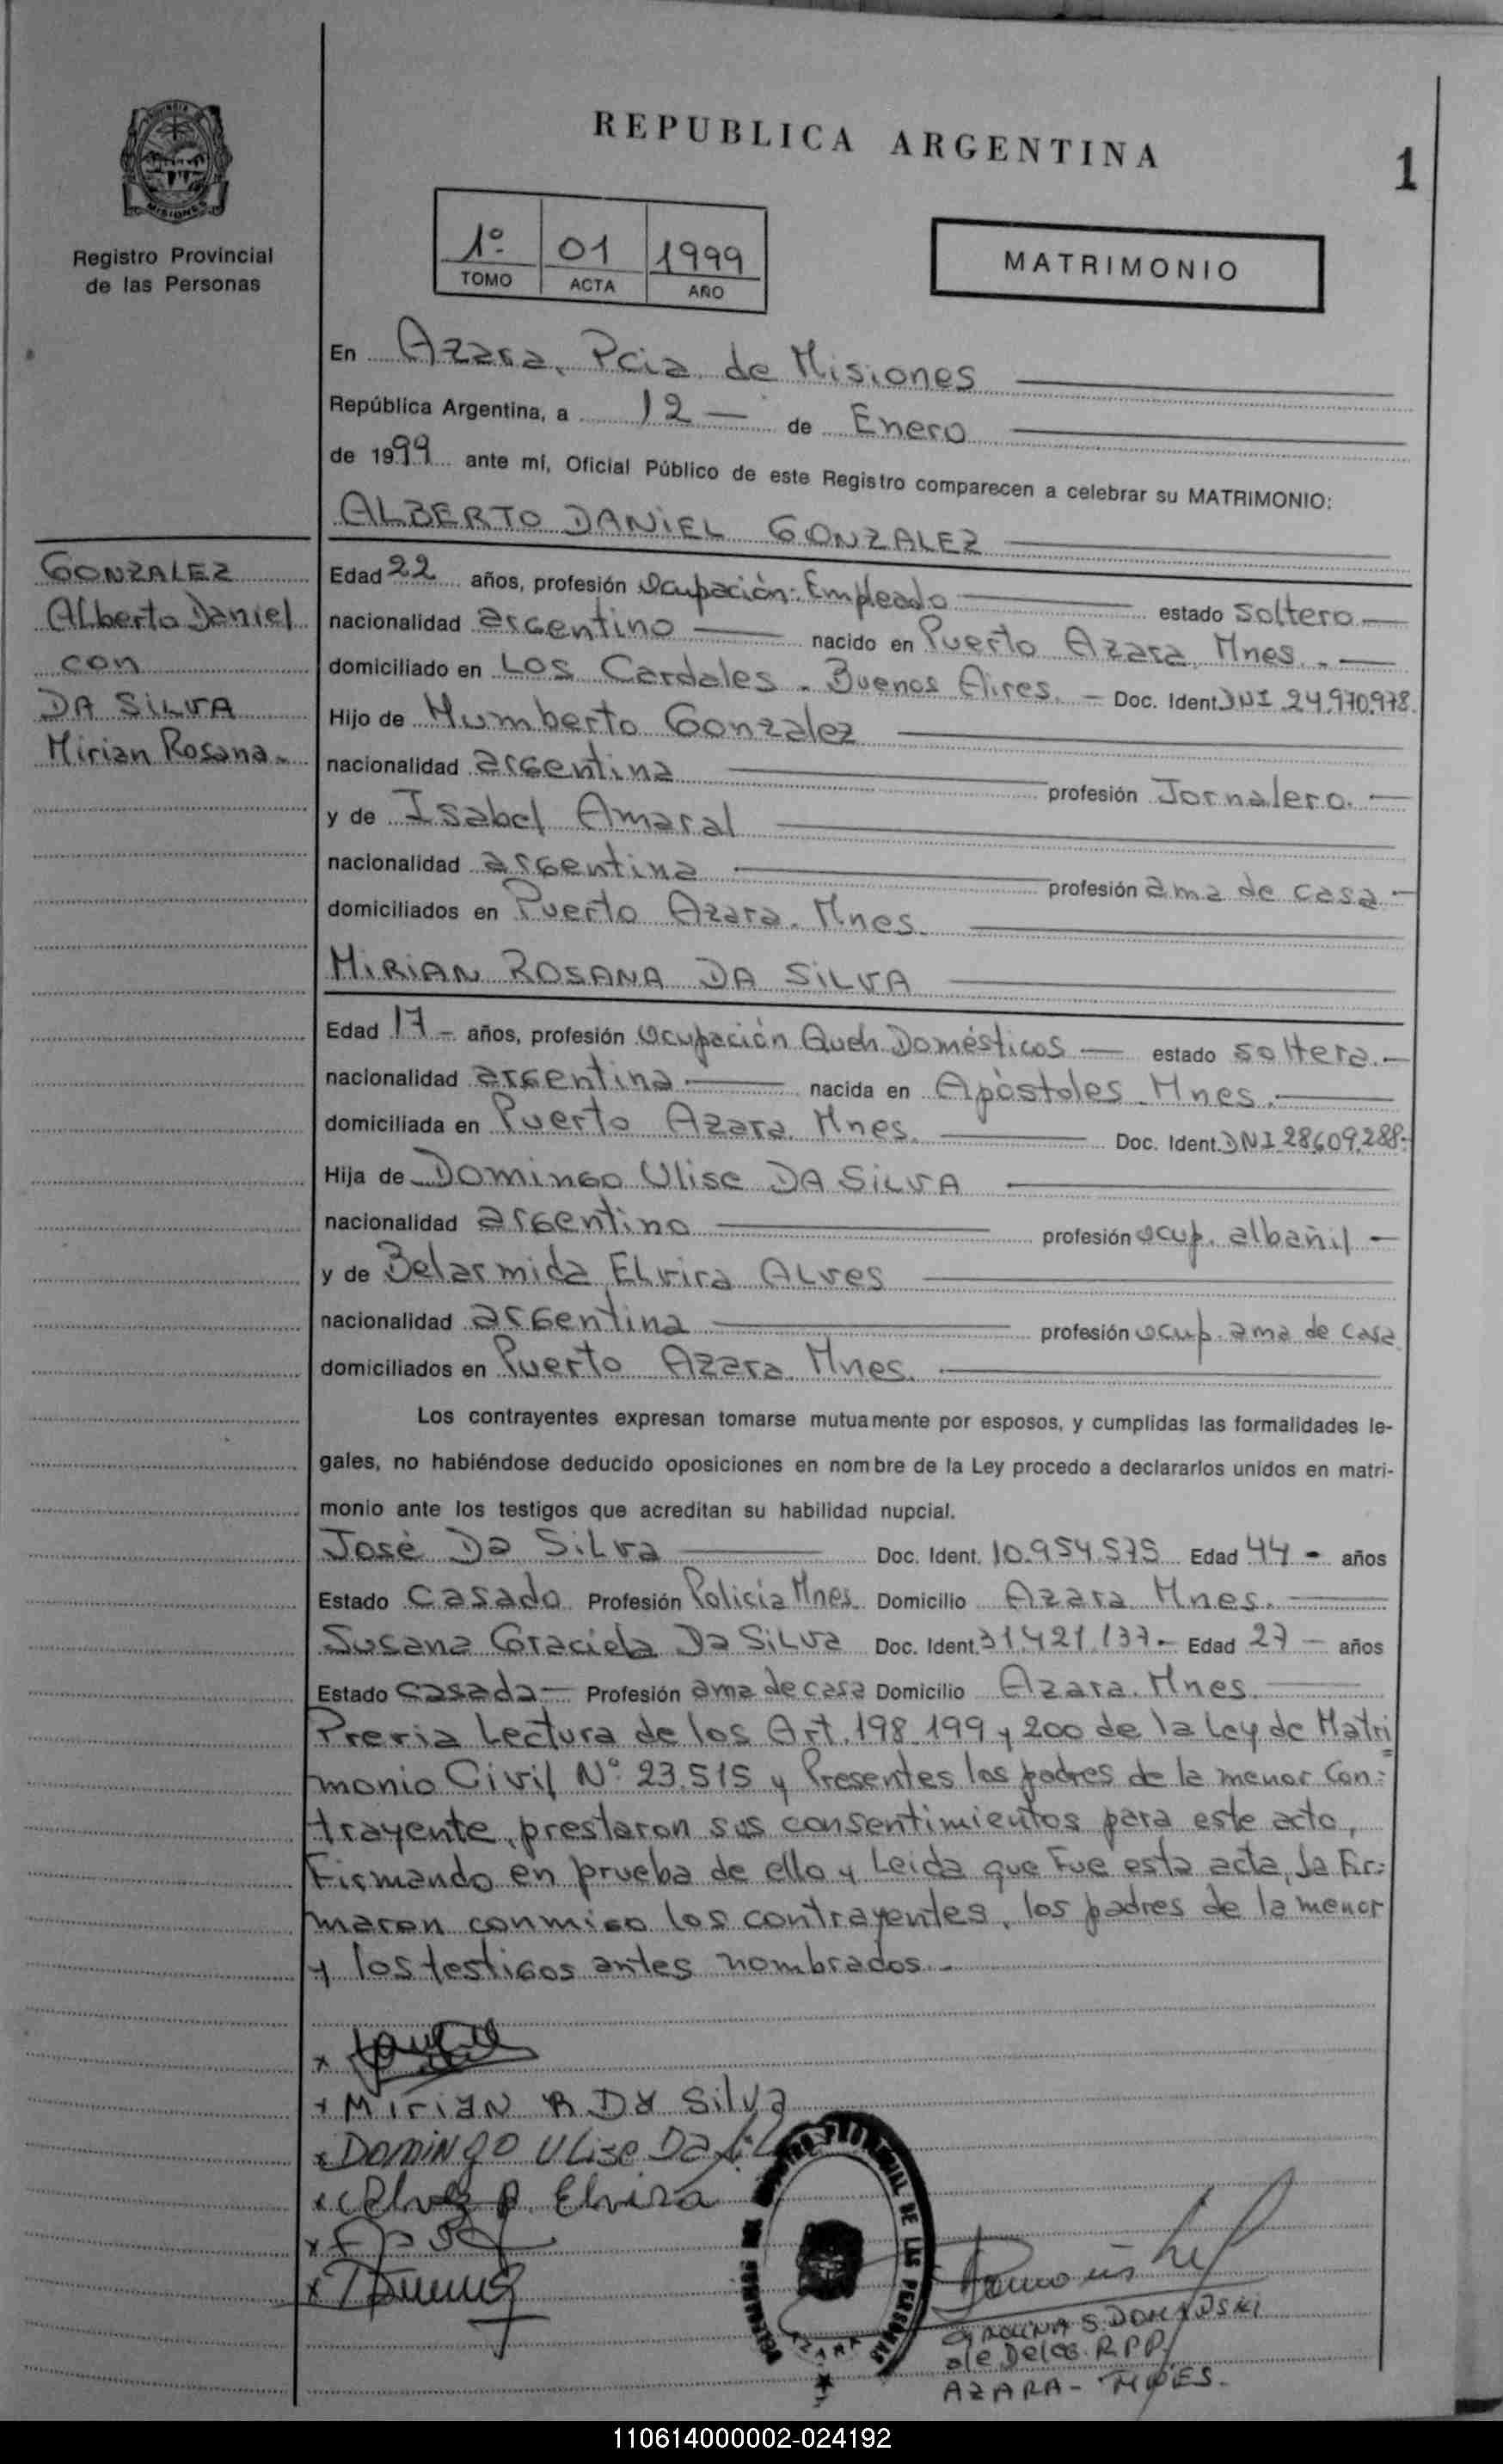 REPUBLICA ARGENTINA
1
MISIONES
Registro Provincial
de las Personas
1º 01 1999
TOMO ACTA AÑO
MATRIMONIO
En Azara, Pcia de Misiones
República Argentina, a 12 — de Enero
de 1999 ante mí, Oficial Público de este Registro comparecen a celebrar su MATRIMONIO:
ALBERTO DANIEL GONZALEZ
GONZALEZ
Alberto Daniel
con
DA SILVA
Mirian Rosana.
Edad 22 años, profesión Ocupación: Empleado estado soltero.—
nacionalidad argentino — nacido en Puerto Azara, Mnes.-—
domiciliado en Los Cardales - Buenos Aires. — Doc. Ident. DNI 24.970.978.
Hijo de Humberto Gonzalez
nacionalidad argentina profesión Jornalero.—
y de Isabel Amaral
nacionalidad argentina profesión ama de casa —
domiciliados en Puerto Azara. Mnes.
MIRIAN ROSANA DA SILVA
Edad 17 - años, profesión Ocupación Queh. Domésticos — estado soltera.—
nacionalidad argentina.— nacida en Apóstoles. Mnes.—
domiciliada en Puerto Azara. Mnes. — Doc. Ident. DNI 28.609.288.-
Hija de Domingo Ulise DA SILVA
nacionalidad argentino profesión ocup. albañil —
y de Belarmida Elvira Alves
nacionalidad argentina profesión ocup. ama de casa
domiciliados en Puerto Azara. Mnes.
Los contrayentes expresan tomarse mutuamente por esposos, y cumplidas las formalidades le-
gales, no habiéndose deducido oposiciones en nombre de la Ley procedo a declararlos unidos en matri-
monio ante los testigos que acreditan su habilidad nupcial.
José Da Silva — Doc. Ident. 10.954.575 Edad 44 - años
Estado Casado Profesión Policía Mnes. Domicilio Azara Mnes.
Susana Graciela Da Silva Doc. Ident. 31.421.137.- Edad 27 - años
Estado casada — Profesión ama de casa Domicilio Azara. Mnes.
Previa Lectura de los Art. 198 199 y 200 de la Ley de Matri
monio Civil Nº 23.515 y Presentes los padres de la menor Con=
trayente, prestaron sus consentimientos para este acto,
Firmando en prueba de ello y Leida que Fue esta acta, la Fir=
maron conmigo los contrayentes, los padres de la menor
y los testigos antes nombrados.-
x
x Mirian R Da Silva
x Domingo Ulise Da
x Elvira
x
x
REGISTRO PROVINCIAL DE LAS PERSONAS
AZARA
S. DOMANSKI
Deleg. R.P.P.
AZARA - MNES.
110614000002-024192